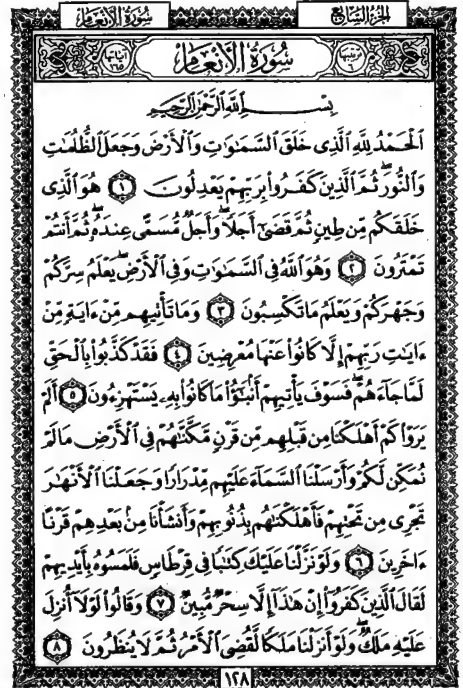 سُورَةُ الأَنْعَام الجُزْءُ السَّابِعُ
سُورَةُ الأَنْعَامِ
بِسْمِ اللَّهِ الرَّحْمَٰنِ الرَّحِيمِ
الْحَمْدُ لِلَّهِ الَّذِى خَلَقَ السَّمَٰوَٰتِ وَالْأَرْضَ وَجَعَلَ الظُّلُمَٰتِ
وَالنُّورَ ۖ ثُمَّ الَّذِينَ كَفَرُوا۟ بِرَبِّهِمْ يَعْدِلُونَ ١ هُوَ الَّذِى
خَلَقَكُم مِّن طِينٍ ثُمَّ قَضَىٰٓ أَجَلًا ۖ وَأَجَلٌ مُّسَمًّى عِندَهُۥ ۖ ثُمَّ أَنتُمْ
تَمْتَرُونَ ٢ وَهُوَ اللَّهُ فِى السَّمَٰوَٰتِ وَفِى الْأَرْضِ ۖ يَعْلَمُ سِرَّكُمْ
وَجَهْرَكُمْ وَيَعْلَمُ مَا تَكْسِبُونَ ٣ وَمَا تَأْتِيهِم مِّنْ ءَايَةٍ مِّنْ
ءَايَٰتِ رَبِّهِمْ إِلَّا كَانُوا۟ عَنْهَا مُعْرِضِينَ ٤ فَقَدْ كَذَّبُوا۟ بِالْحَقِّ
لَمَّا جَآءَهُمْ ۖ فَسَوْفَ يَأْتِيهِمْ أَنۢبَٰٓؤُا۟ مَا كَانُوا۟ بِهِۦ يَسْتَهْزِءُونَ ٥ أَلَمْ
يَرَوْا۟ كَمْ أَهْلَكْنَا مِن قَبْلِهِم مِّن قَرْنٍ مَّكَّنَّٰهُمْ فِى الْأَرْضِ مَا لَمْ
نُمَكِّن لَّكُمْ وَأَرْسَلْنَا السَّمَآءَ عَلَيْهِم مِّدْرَارًا وَجَعَلْنَا الْأَنْهَٰرَ
تَجْرِى مِن تَحْتِهِمْ فَأَهْلَكْنَٰهُم بِذُنُوبِهِمْ وَأَنشَأْنَا مِنۢ بَعْدِهِمْ قَرْنًا
ءَاخَرِينَ ٦ وَلَوْ نَزَّلْنَا عَلَيْكَ كِتَٰبًا فِى قِرْطَاسٍ فَلَمَسُوهُ بِأَيْدِيهِمْ
لَقَالَ الَّذِينَ كَفَرُوٓا۟ إِنْ هَٰذَآ إِلَّا سِحْرٌ مُّبِينٌ ٧ وَقَالُوا۟ لَوْلَآ أُنزِلَ
عَلَيْهِ مَلَكٌ ۖ وَلَوْ أَنزَلْنَا مَلَكًا لَّقُضِىَ الْأَمْرُ ثُمَّ لَا يُنظَرُونَ ٨
١٢٨